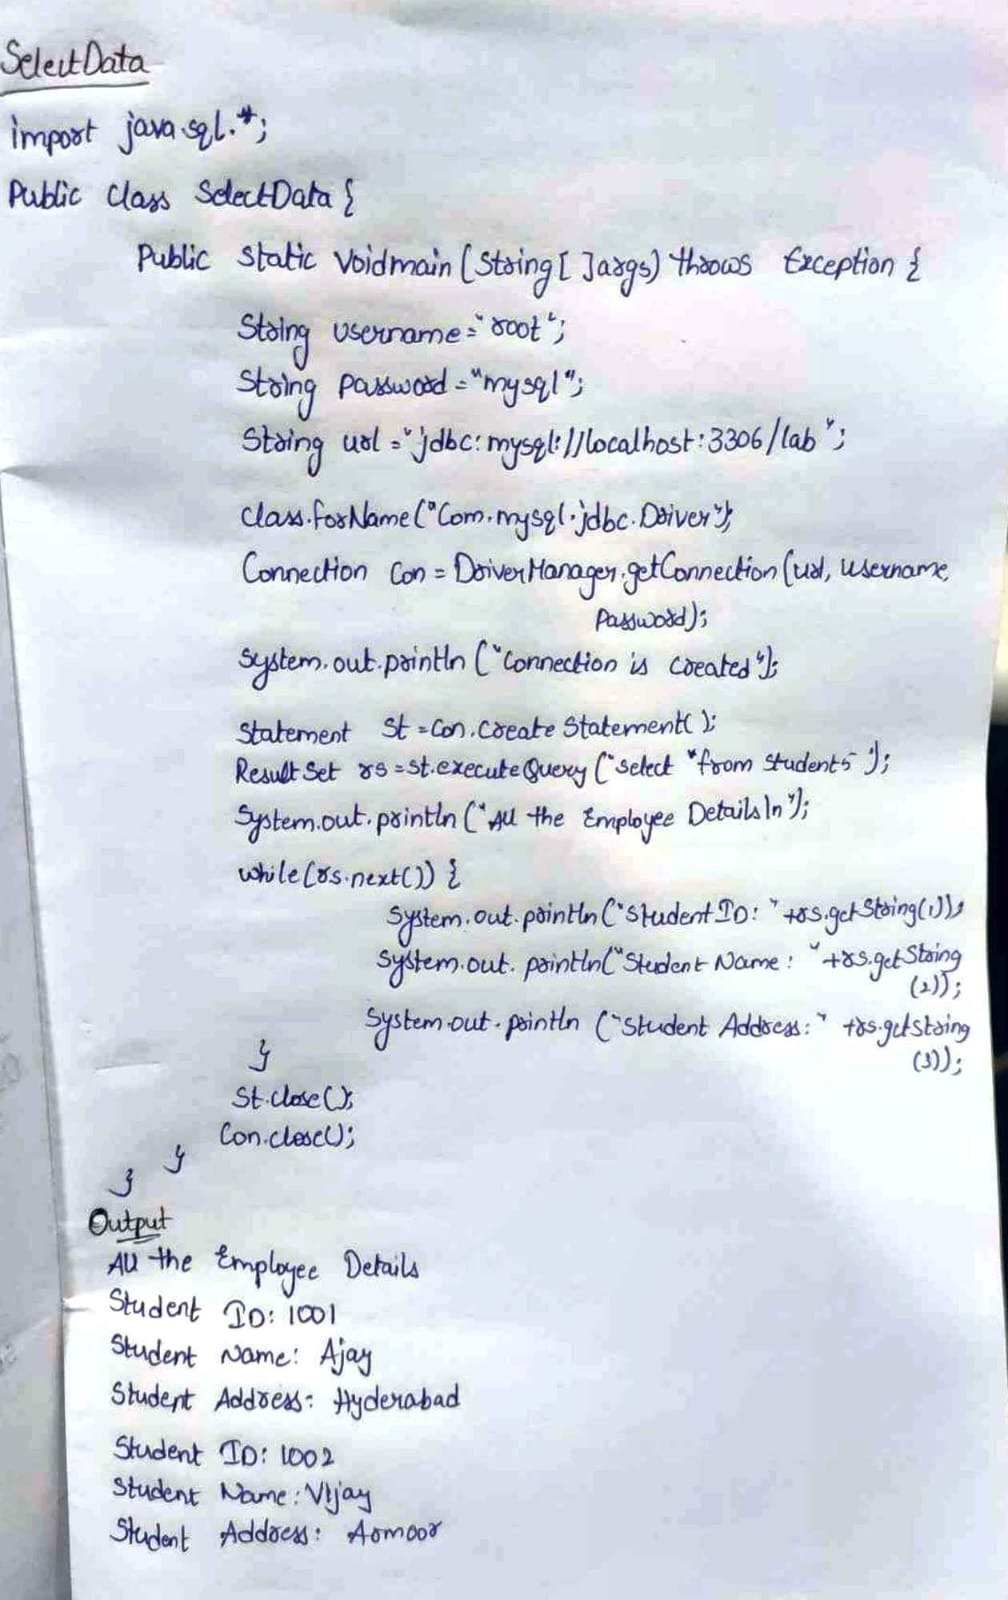 SelectData
import java.sql.*;
Public Class SelectData {
Public Static Void main (String [ ] args) throws Exception {
String username = "root";
String Password = "mysql";
String url = "jdbc:mysql://localhost:3306/lab";
class.forName ("Com.mysql.jdbc.Driver");
Connection Con = DriverManager.getConnection (url, username,
Password);
System.out.println ("Connection is created");
Statement St = Con.Create Statement( );
Result Set rs = st.execute Query ("Select * from students");
System.out.println ("All the Employee Details\n");
while (rs.next()) {
System.out.println ("Student ID: " +rs.getString(1));
System.out.println("Student Name: " +rs.getString
(2));
System.out.println ("Student Address: " +rs.getString
(3));
}
St.close();
Con.close();
}
}
Output
All the Employee Details
Student ID: 1001
Student Name: Ajay
Student Address: Hyderabad
Student ID: 1002
Student Name: Vijay
Student Address: Armoor